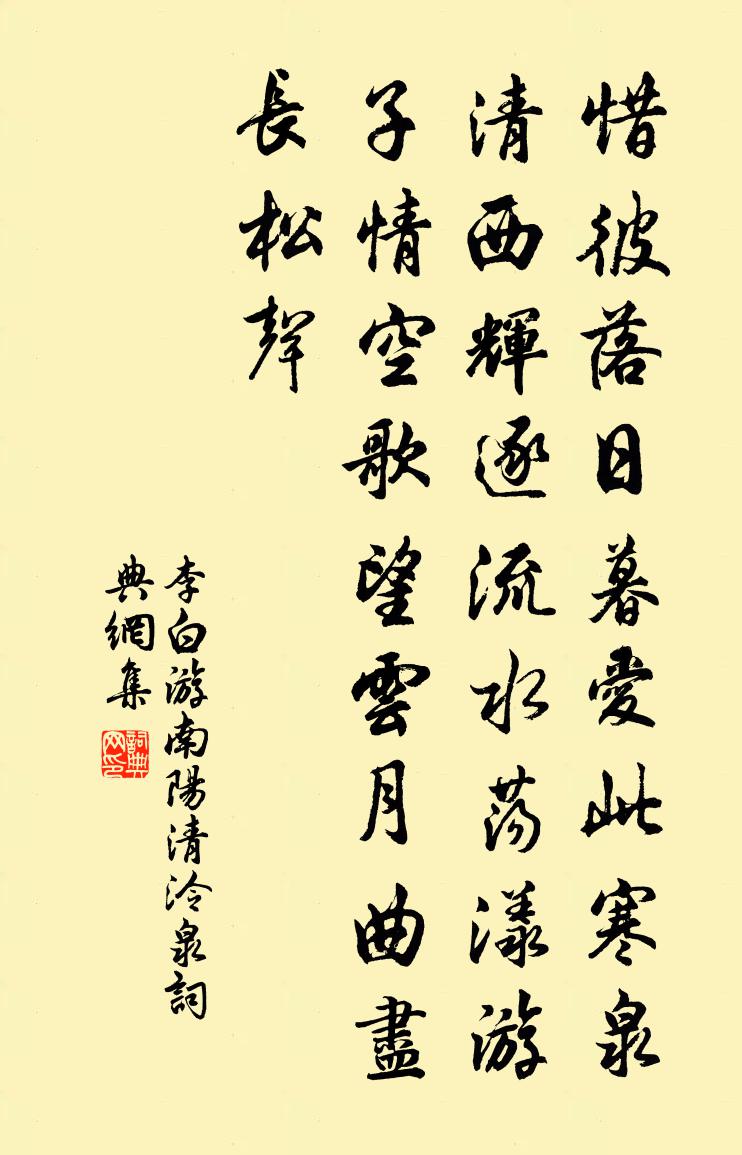 惜彼落日暮愛此寒泉
清西輝逐流水蕩漾游
子情空歌望雲月曲盡
長松聲
李白游南陽清泠泉詞
典網集
詞典網印